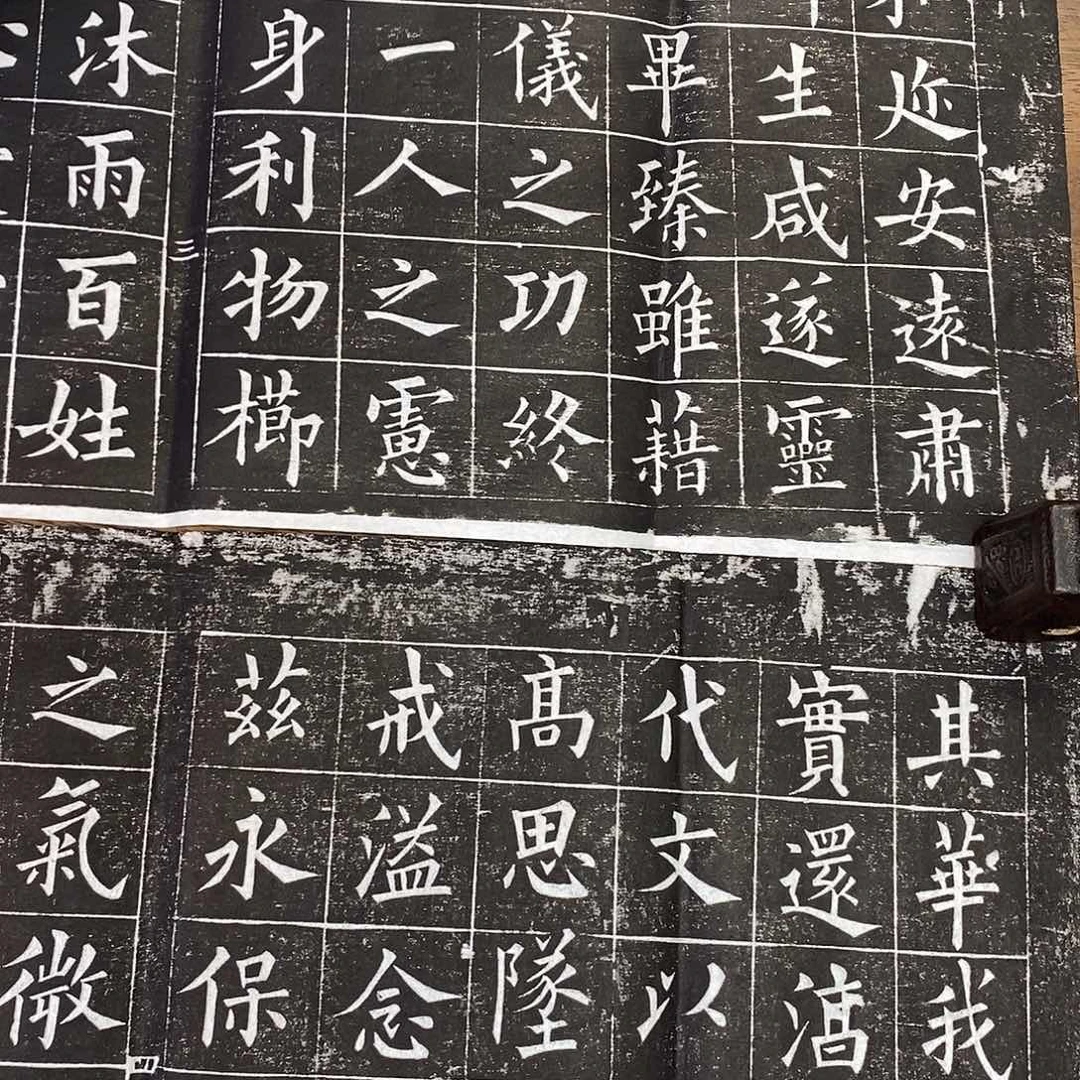 迩安遠肅
生咸遂靈
畢臻雖藉
儀之功終
一人之慮
身利物櫛
三
沐雨百姓
其華我
實還湻
代文以
髙思墜
戒溢念
茲永保
四
之氣微